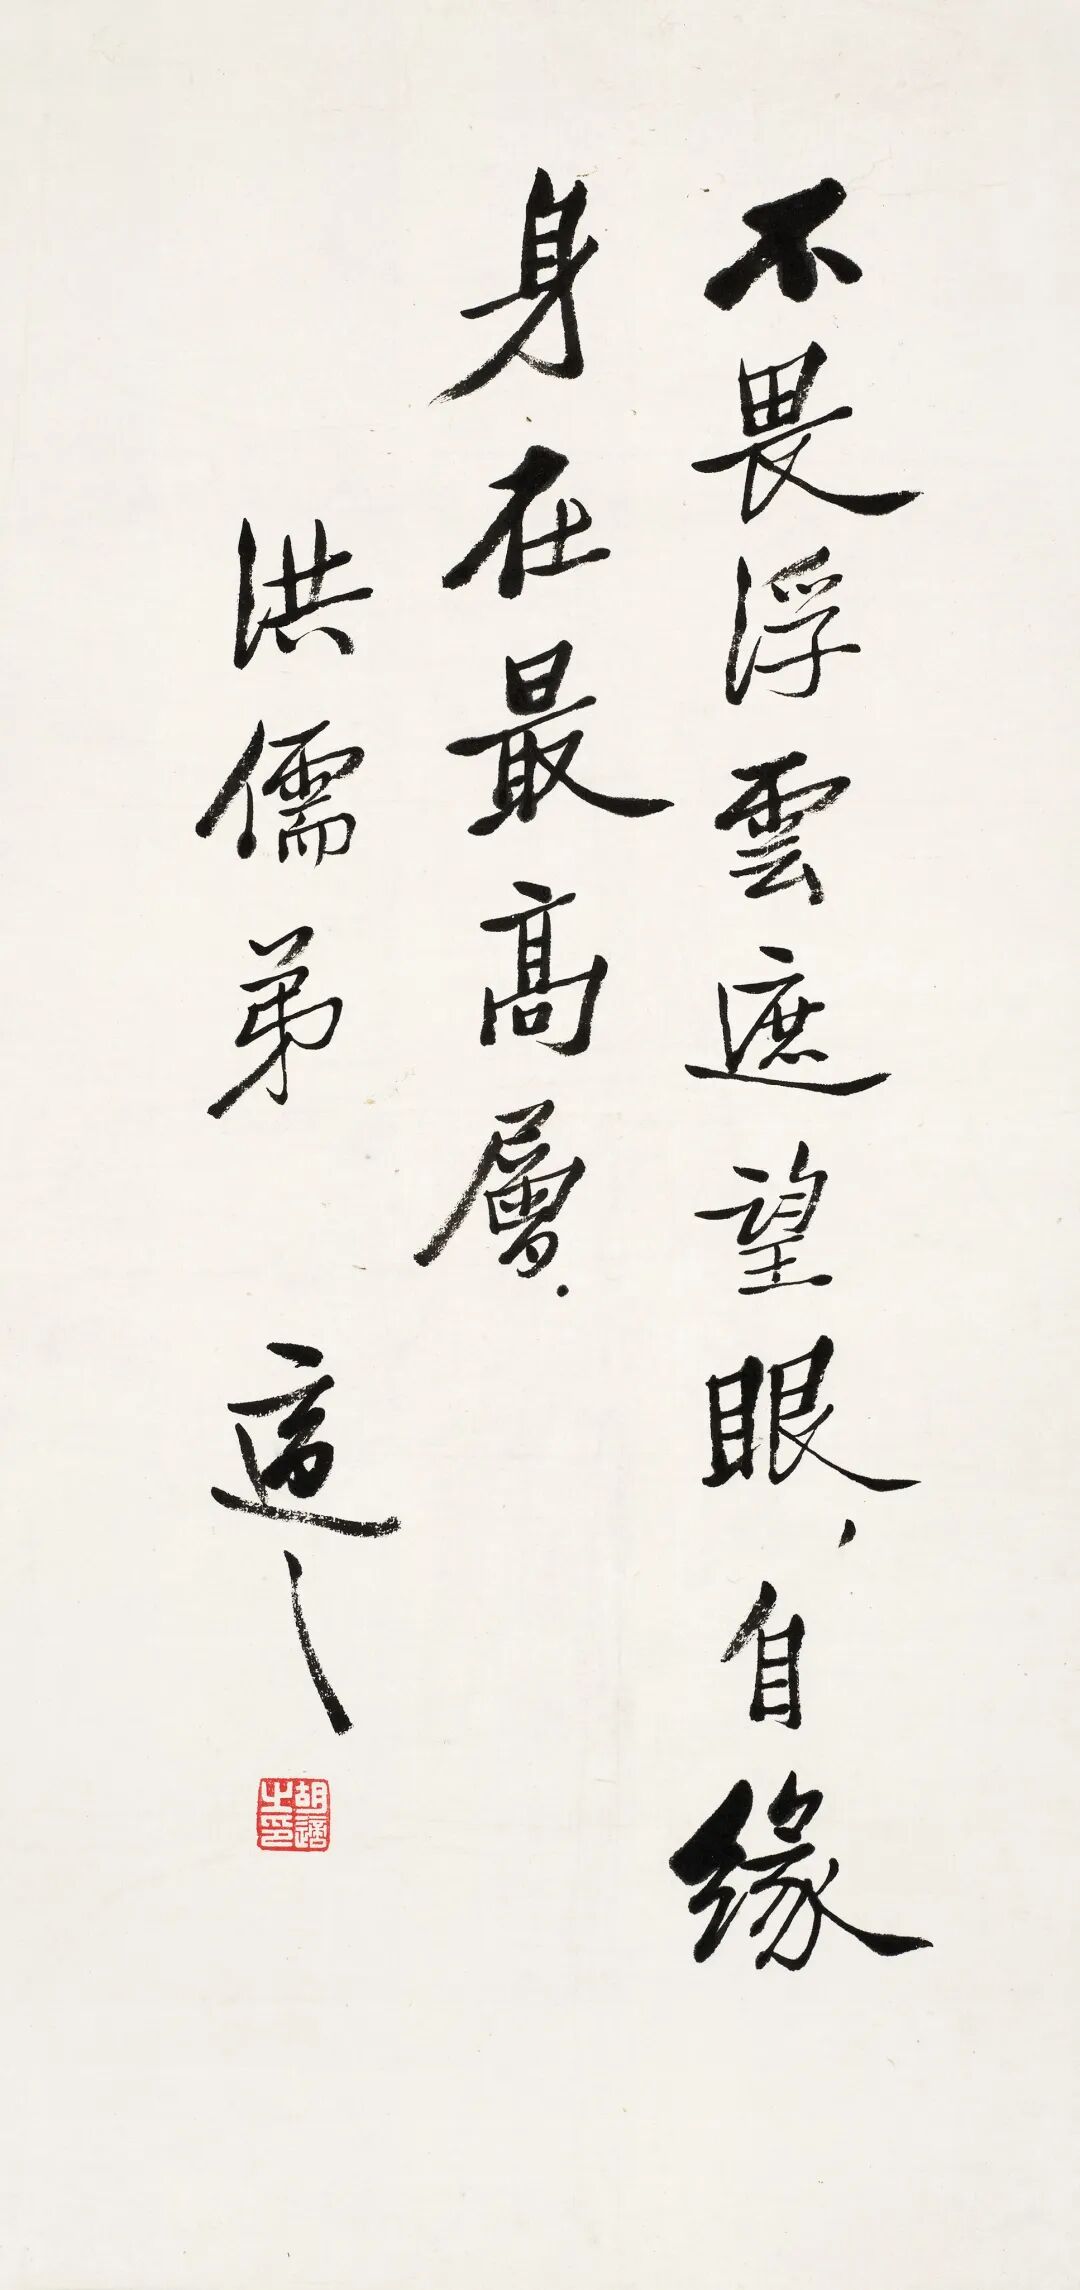 不畏浮雲遮望眼，自緣
身在最高層．
洪儒弟　適之
胡適之印